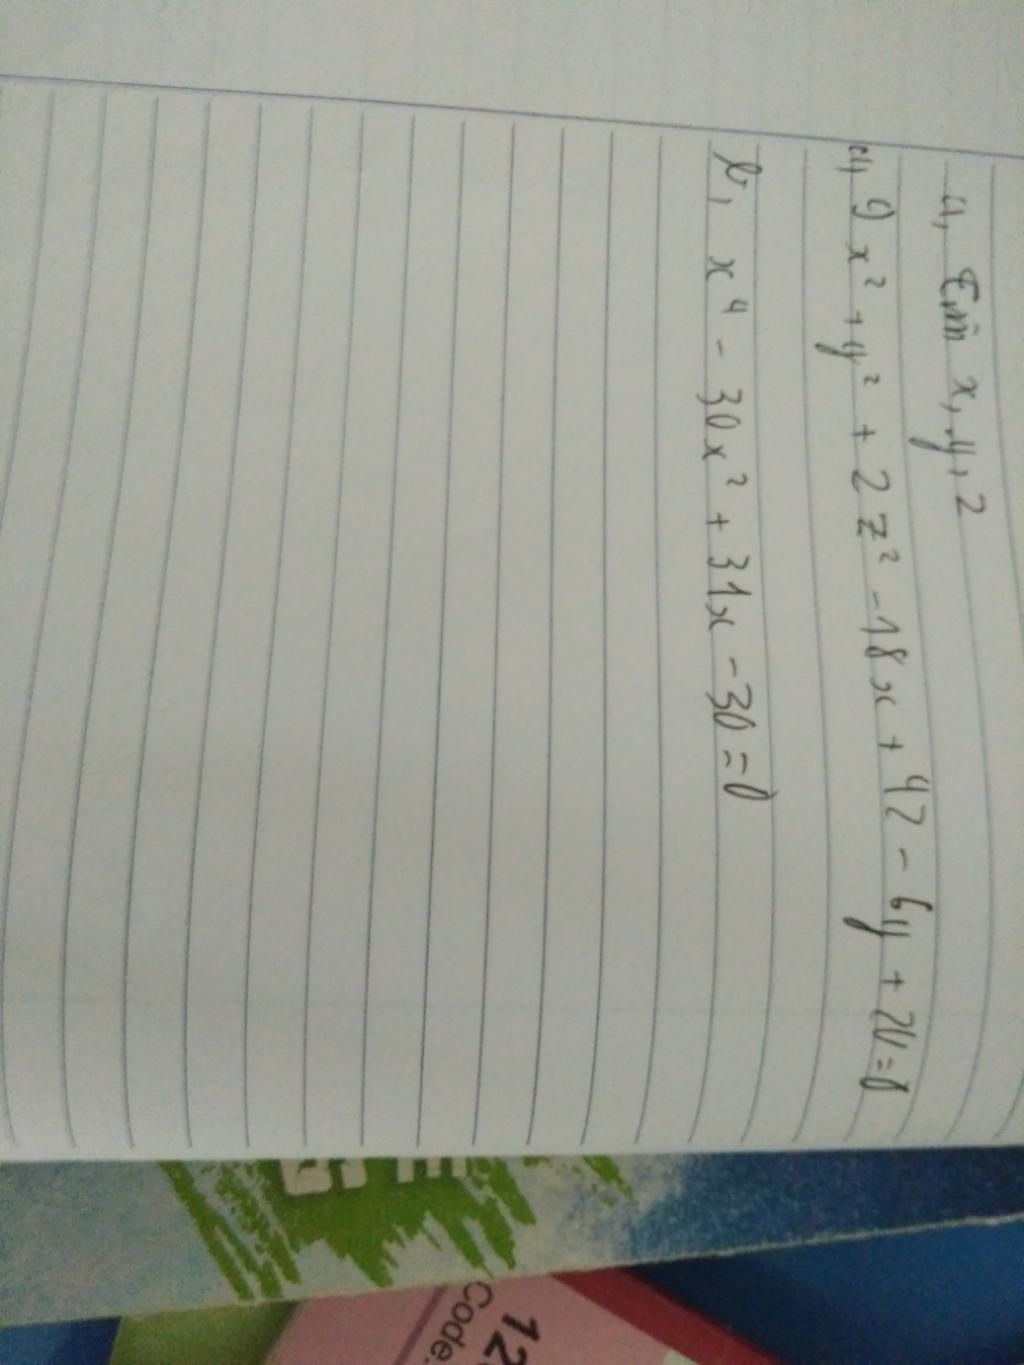 a, Tìm x, y, z
a, 9x² + y² + 2z² - 18x + 4z - 6y + 20 = 0
b, x⁴ - 30x² + 31x - 30 = 0
Code.